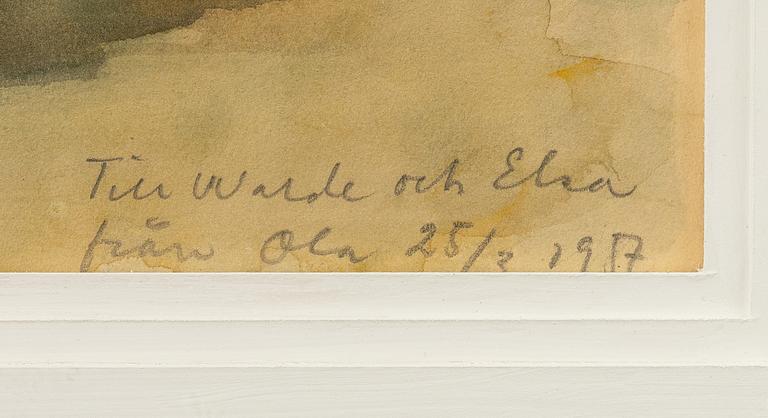 Till Warde och Elsa
från Ola 25/3 1987